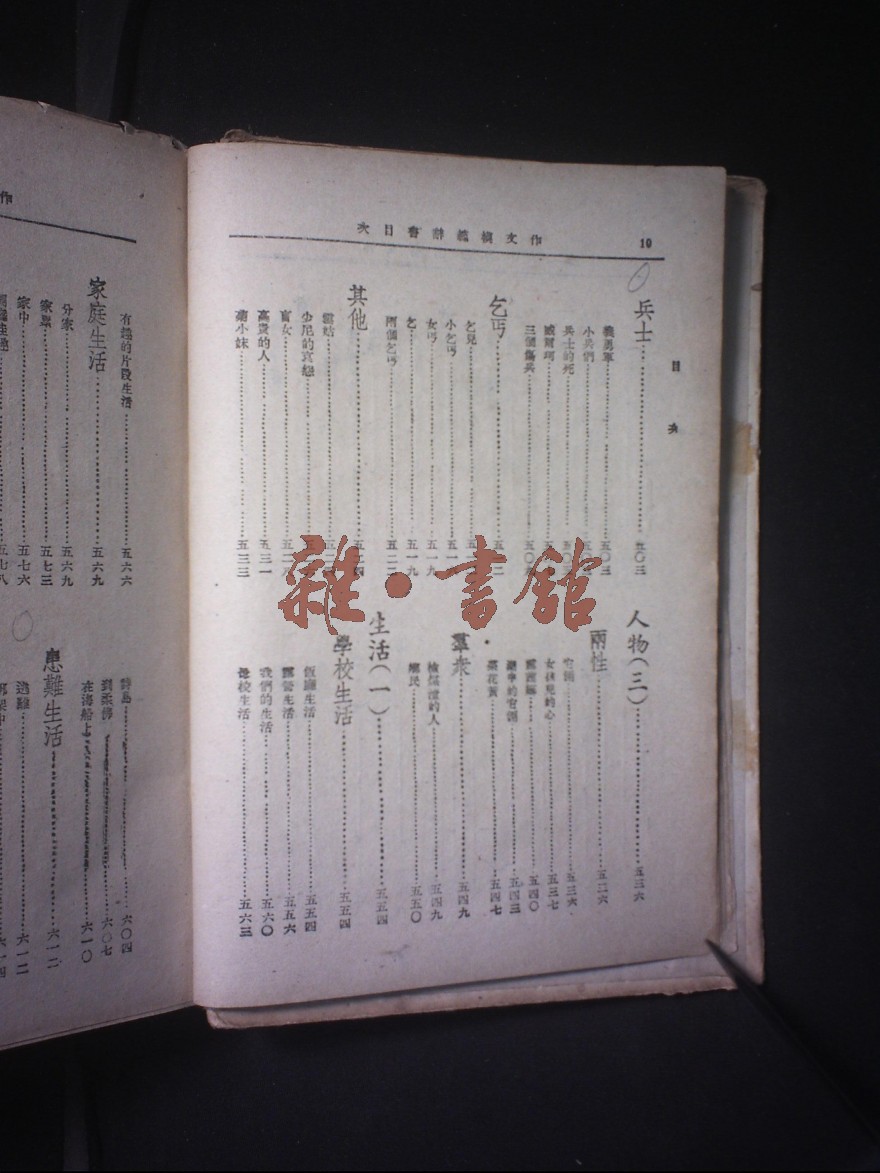 作文模範辭書目次
10
目次
兵士 五〇三
義勇軍 五〇三
小兵們
兵士的死
威爾珂
三個傷兵
乞丐
乞兒
小乞丐
女丐 五一九
乞 五一九
兩個乞丐 五二二
其他
少尼的哀怨
盲女
高貴的人 五三一
菊小妹 五三三
人物(三) 五三六
兩性 五三六
空洞 五三六
女孩兒的心 五三七
露西娜 五四〇
五四三
菜花黃 五四七
羣衆 五四九
檢煤渣的人 五四九
鄉民 五五〇
生活(一) 五五四
學校生活 五五四
飯廳生活 五五四
露營生活 五五六
我們的生活 五六〇
母校生活 五六三
雜·書館
作
有趣的片段生活 五六六
家庭生活 五六九
分家 五六九
家累 五七三
家中 五七六
五七八
靜島 六〇四
到柔佛 六〇七
在海船上 六一〇
患難生活 六一二
逃難 六一二
六一四